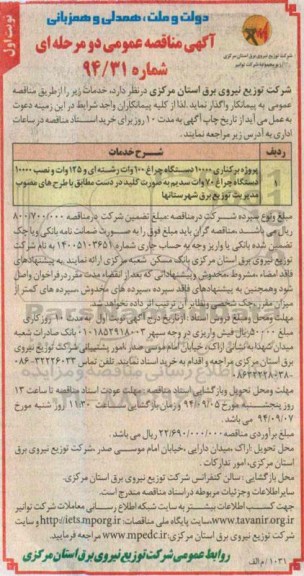 دولت و ملت، همدلی و همزبانی
نوبت اول
آگهی مناقصه عمومی دو مرحله ای
شماره ۹۴/۳۱
شرکت توزیع نیروی برق استان مرکزی
شرکت توزیع نیروی برق استان مرکزی درنظر دارد، خدمات زیر را ازطریق مناقصه
عمومی به پیمانکار واگذار نماید. لذا از کلیه پیمانکاران واجد شرایط در این زمینه دعوت
به عمل می آید از تاریخ چاپ آگهی به مدت ۱۰ روز برای خرید اسناد مناقصه در ساعات
اداری به آدرس زیر مراجعه نمایند.
ردیف شرح خدمات
۱ پروژه برکناری ۱۰۰۰۰ دستگاه چراغ ۱۰۰ وات رشته ای و ۱۲۵ وات و نصب ۱۰۰۰۰
دستگاه چراغ ۷۰ وات سدیم به صورت کلید در دست مطابق با طرح های مصوب
مدیریت توزیع برق شهرستانها
مبلغ ونوع سپرده شرکت درمناقصه: مبلغ تضمین شرکت در مناقصه ۸۰۰/۷۰۰/۰۰۰
ریال می باشد. مناقصه گران باید مبلغ فوق را به صورت ضمانت نامه بانکی ویا چک
تضمین شده بانکی یا واریز وجه به حساب جاری شماره ۱۴۰۰۵۱۰۳۶۵۱ به نام شرکت
توزیع نیروی برق استان مرکزی بانک مسکن شعبه مرکزی ارائه نمایند. به پیشنهادهای
فاقد امضاء، مشروط، مخدوش وپیشنهاداتی که بعد از انقضاء مدت مقرر درفراخوان واصل
شود وهمچنین به پیشنهادهای فاقد سپرده، سپرده های مخدوش، سپرده های کمتر از
میزان مقرر، چک شخصی ونظایر آن ترتیب اثر داده نخواهد شد.
مهلت ومحل ومبلغ فروش اسناد: از تاریخ درج آگهی نوبت اول به مدت ۱۰ روز کاری
مبلغ ۵۰۰۰۰۰ ریال فیش واریزی در وجه سپهر ۰۱۰۱۸۵۲۹۱۸۰۰۲ بانک صادرات شعبه
میدان شهدا به نشانی اراک، خیابان امام موسی صدر امور پشتیبانی شرکت توزیع نیروی
برق استان مرکزی مراجعه و اقدام به خرید اسناد نمایند. تلفن تماس
مهلت ومحل تحویل وبازگشایی اسناد مناقصه: مهلت عودت اسناد مناقصه تا ساعت ۱۳
روز پنجشنبه مورخ ۹۴/۰۹/۰۵ وزمان بازگشایی ساعت ۱۱:۳۰ روز شنبه مورخ
۹۴/۰۹/۰۷ می باشد.
مبلغ برآوردی مناقصه ۲۲/۶۹۰/۰۰۰/۰۰۰ ریال می باشد.
محل تحویل: اراک، میدان دارایی، خیابان امام موسی صدر، شرکت توزیع نیروی برق
استان مرکزی، امور تدارکات.
محل بازگشایی: سالن کنفرانس شرکت توزیع نیروی برق استان مرکزی.
سایراطلاعات وجزئیات مربوطه دراسناد مناقصه مندرج است.
جهت کسب اطلاعات بیشتر به سایت شبکه اطلاع رسانی معاملات شرکت توانیر
www.tavanir.org.ir سایت پایگاه ملی مناقصات: http://iets.mporg.ir وسایت
شرکت توزیع نیروی برق استان مرکزی www.mpedc.ir مراجعه فرمایید.
روابط عمومی شرکت توزیع نیروی برق استان مرکزی
۱۰۳۱ / م الف